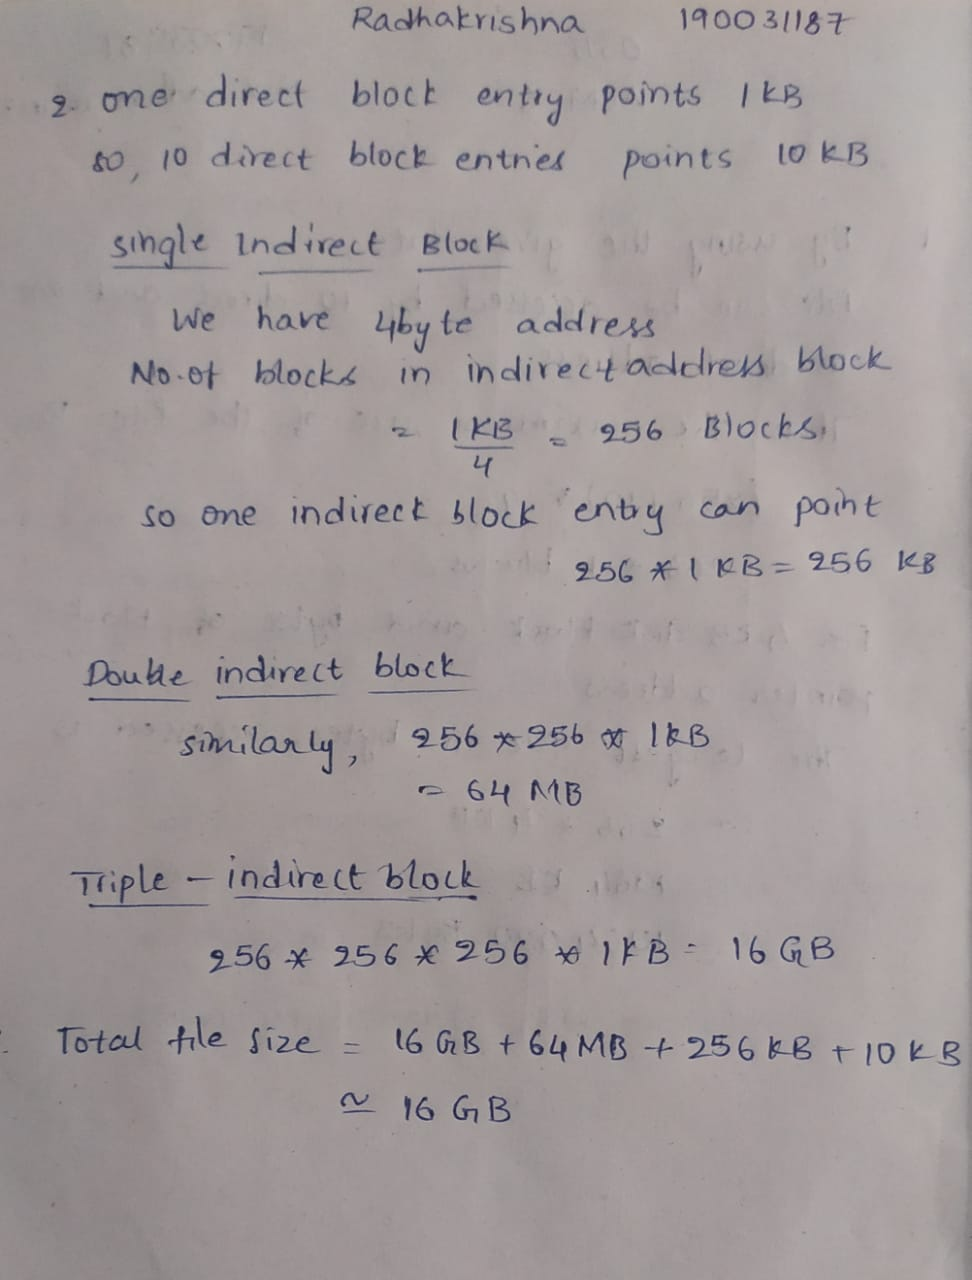 Radhakrishna 190031187
2. one direct block entry points 1 KB
so, 10 direct block entries points 10 KB
single Indirect Block
We have 4byte address
No.of blocks in indirect address block
= 1 KB / 4 = 256 Blocks.
so one indirect block entry can point
256 * 1 KB = 256 KB
Double indirect block
similarly, 256 * 256 * 1 KB
= 64 MB
Triple - indirect block
256 * 256 * 256 * 1 KB = 16 GB
Total file size = 16 GB + 64 MB + 256 KB + 10 KB
≃ 16 GB